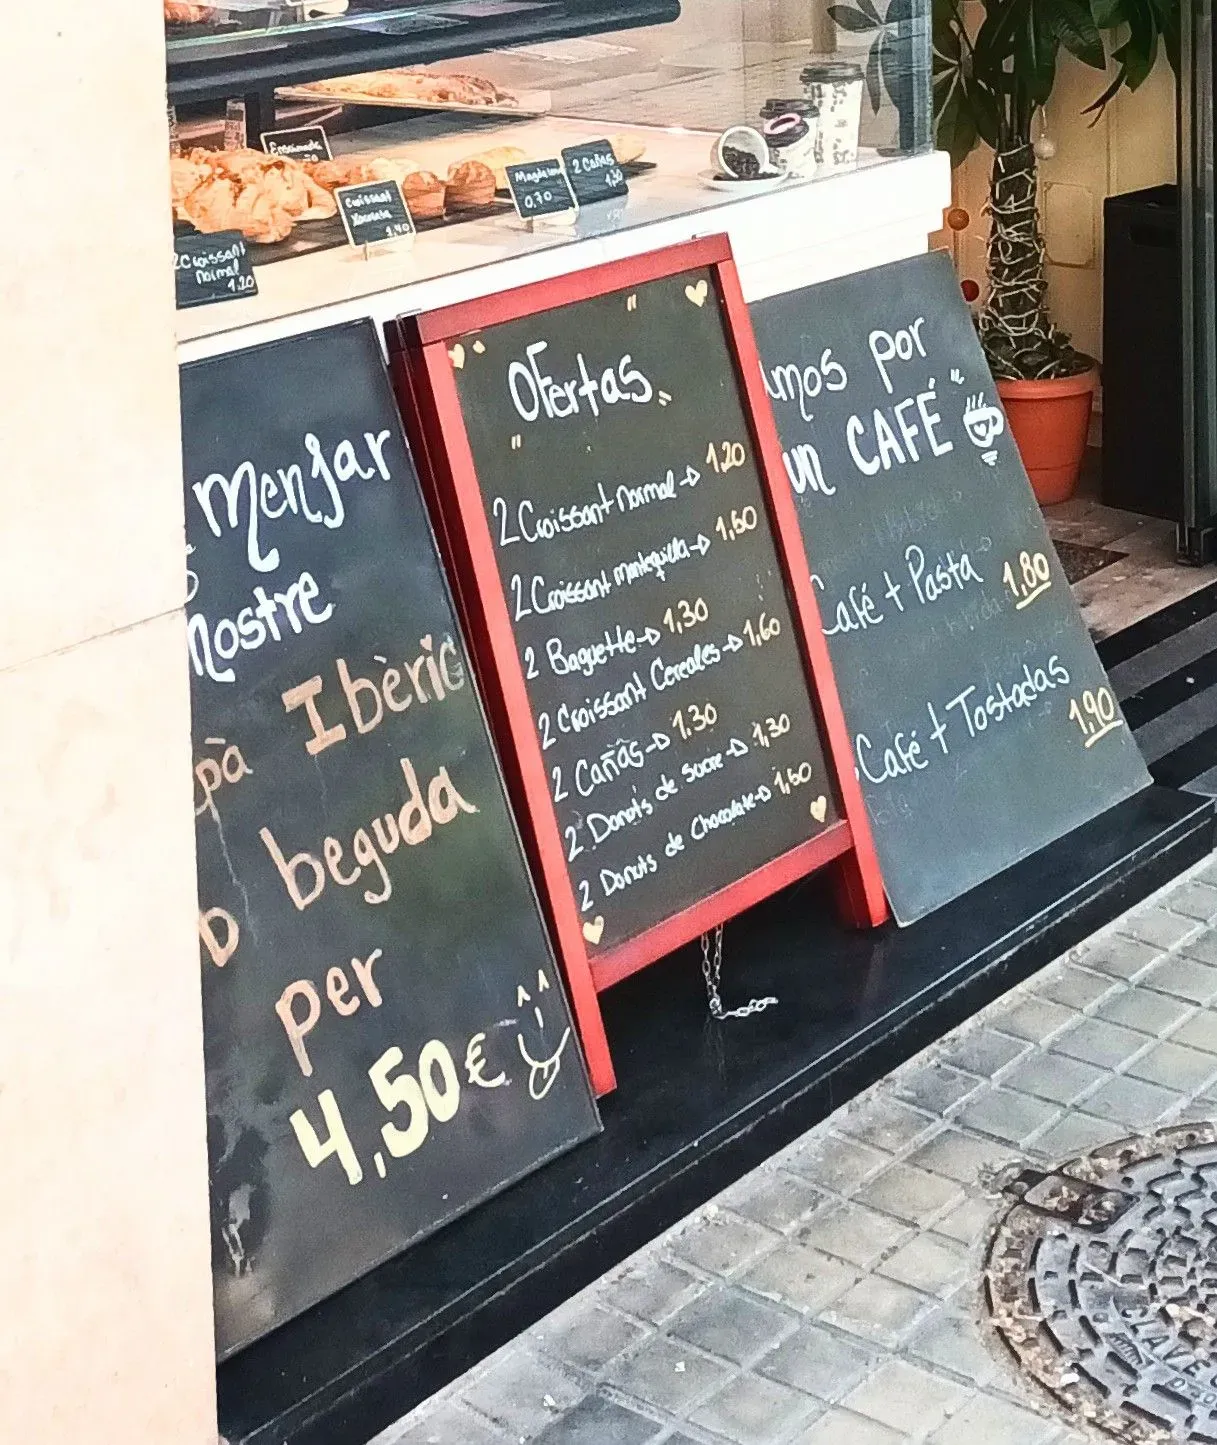 Ensaimada
Croissant
Xocolata
1,40
Magdalena
0,70
2 Cañas
1,30
2 Croissant
Normal
1,20
Menjar
Nostre
pà Ibèric
beguda
per
4,50€
Ofertas
2 Croissant normal → 1,20
2 Croissant mantequilla → 1,50
2 Baguette → 1,30
2 Croissant Cereales → 1,60
2 Cañas → 1,30
2 Donuts de sucre → 1,30
2 Donuts de Chocolate → 1,60
amos por
un CAFÉ
Café + Pasta 1,80
Café + Tostadas
1,90
CLAVE